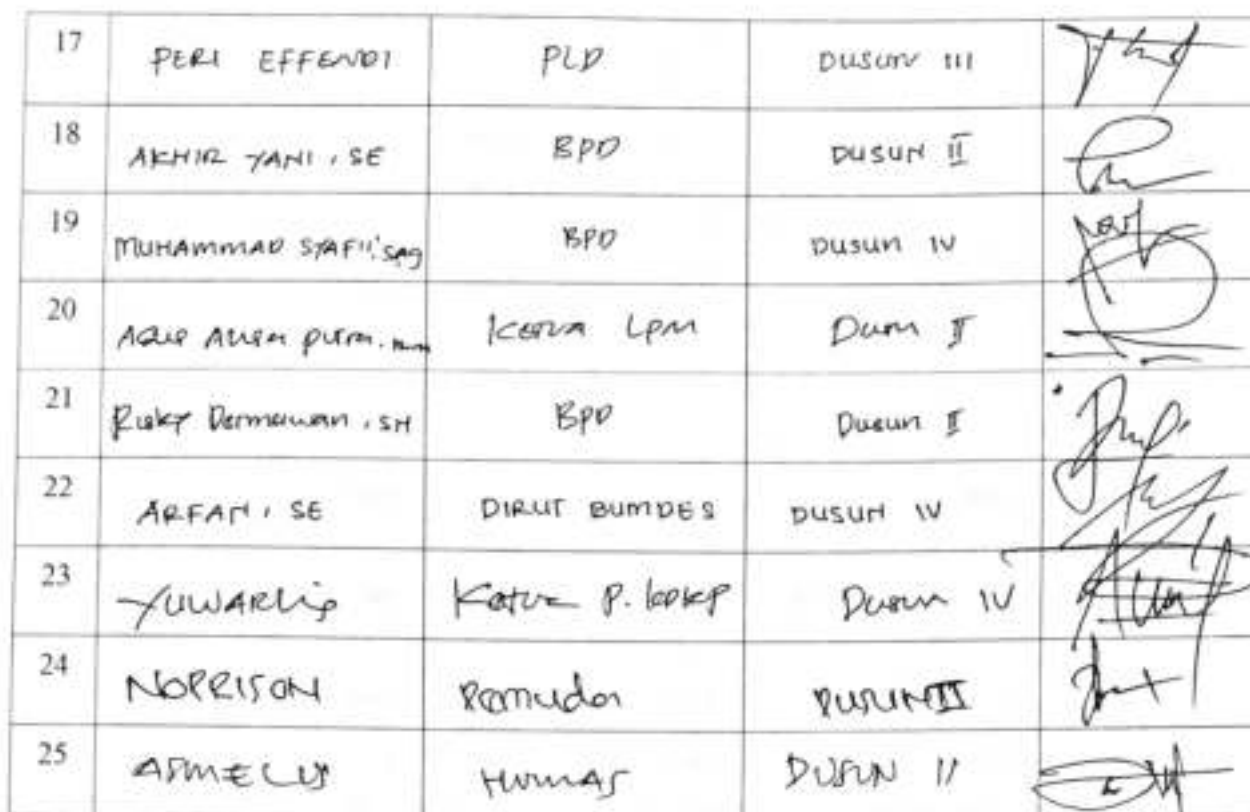 17 PERI EFFENDI PLD DUSUN III
18 AKHIR YANI, SE BPD DUSUN II
19 MUHAMMAD SYAFII, SAg BPD DUSUN IV
20 Putra. Ketua LPM Dusun II
21 Risky Dermawan, SH BPD Dusun II
22 ARFAN, SE DIRUT BUMDES DUSUN IV
23 YUWARLIS Ketua P. Dusun IV
24 NOPRISON Pemuda DUSUN II
25 HUMAS DUSUN II